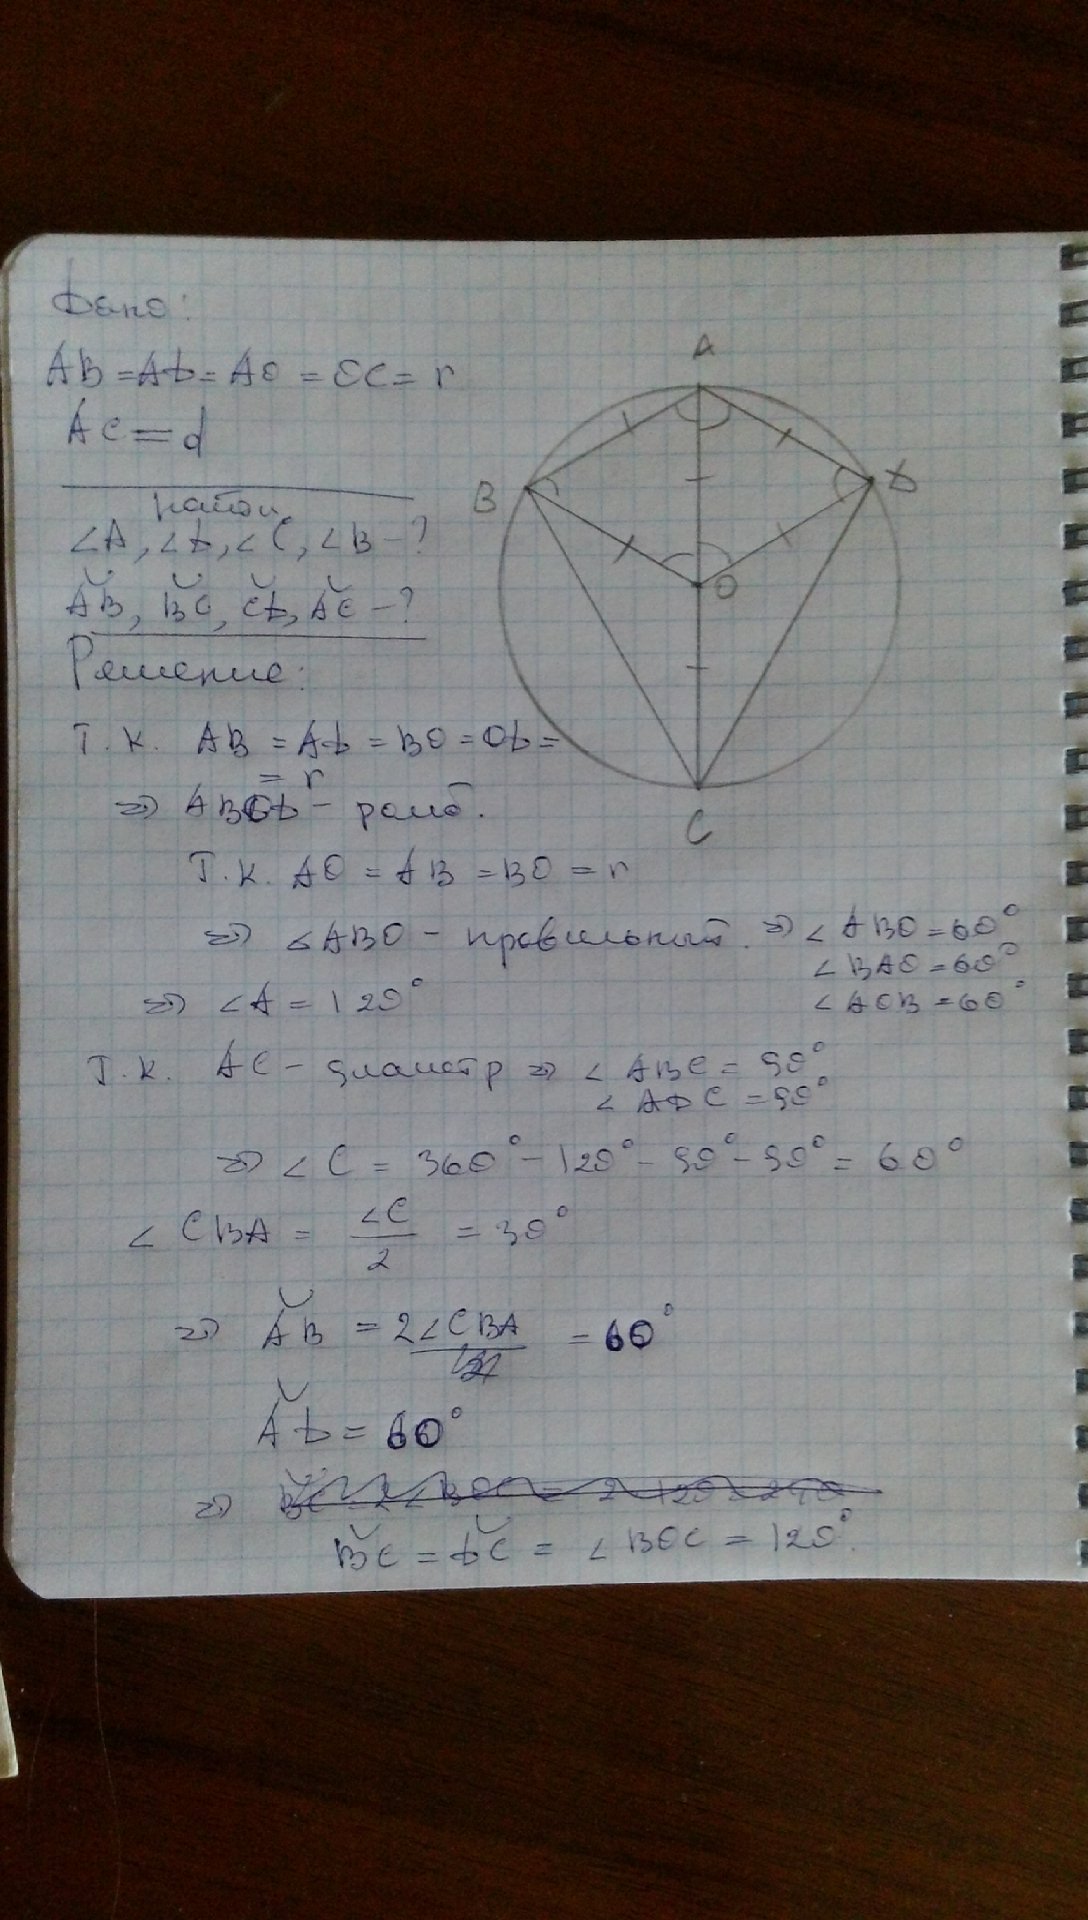 Дано:
AB = AD = AO = OC = r
AC = d
найти
∠A, ∠D, ∠C, ∠B - ?
A͝B, B͝C, C͝D, A͝C - ?
Решение:
Т.к. AB = AD = BO = OD =
= r
⇒ ABOD - ромб.
Т.к. AO = AB = BO = r
⇒ ∠ABO - правильный. ⇒ ∠ABO = 60°
∠BAO = 60°
⇒ ∠A = 120°
∠AOB = 60°
Т.к. AC - диаметр ⇒ ∠ABC = 90°
∠ADC = 90°
⇒ ∠C = 360° - 120° - 90° - 90° = 60°
∠CBA = ∠C/2 = 30°
⇒ A͝B = 2∠CBA = 60°
A͝D = 60°
⇒
B͝C = D͝C = ∠BOC = 120°.
A
B
D
O
C